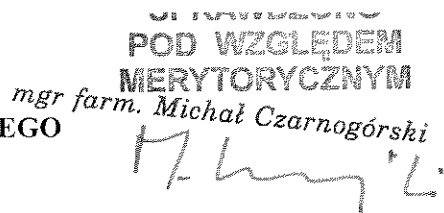 SPRAWDZONO
POD WZGLĘDEM
MERYTORYCZNYM
mgr farm. Michał Czarnogórski
EGO